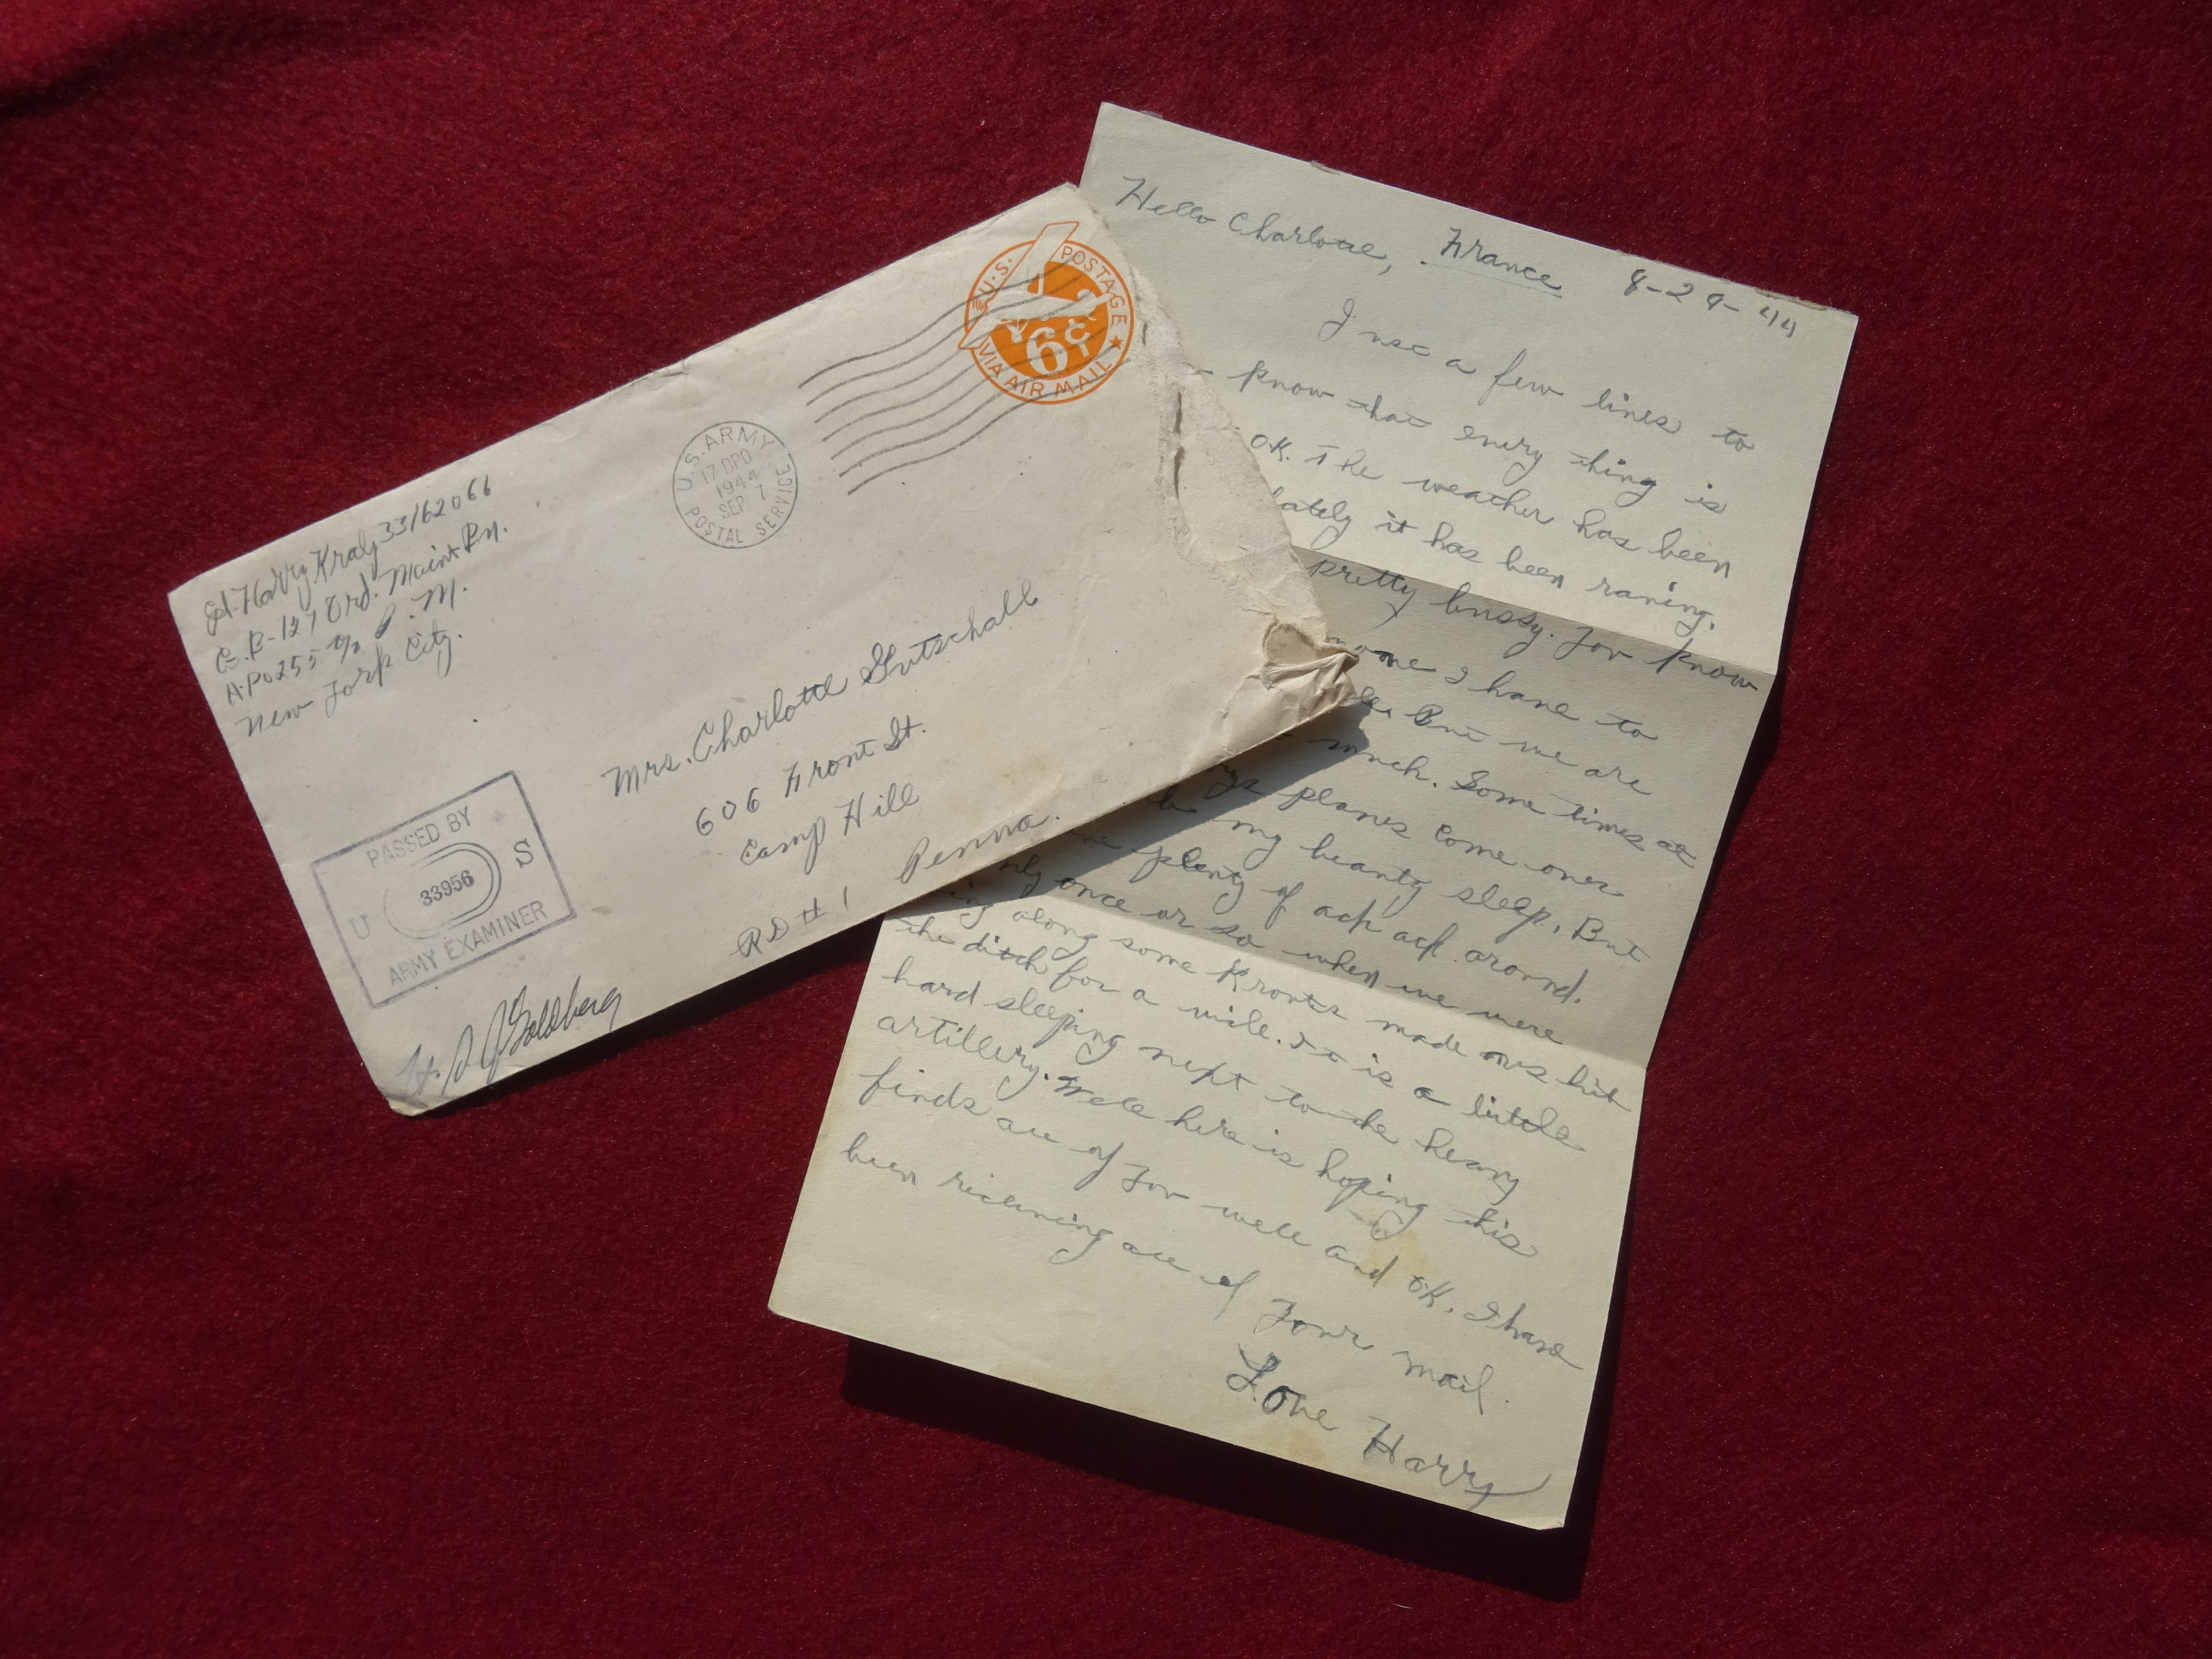 Harry Kraly 33162066
Co. B-127 Ord. Maint Bn.
A.P.O 255 c/o P.M.
New York City.
U.S. POSTAGE
6¢
VIA AIR MAIL
U.S. ARMY
17 BPO
1944
SEP 7
POSTAL SERVICE
Mrs. Charlotte Gutschall
606 Front St.
Camp Hill
RD # 1 Penna.
PASSED BY
U 33956 S
ARMY EXAMINER
Lt. Goldberg
Hello Charlotte, France 8-29-44
Just a few lines to
know that every thing is
OK. The weather has been
lately it has been raning.
pretty bussy. You know
one I have to
But we are
much. Some times at
planes come over
my beauty sleep. But
plenty of ack ack around.
only once or so when we were
along some Krouts made ous hit
the ditch for a wile. It is a little
hard sleeping next to the heavy
artillery. Well here is hoping this
finds all of you well and OK. I have
been riceaving all of your mail.
Love Harry